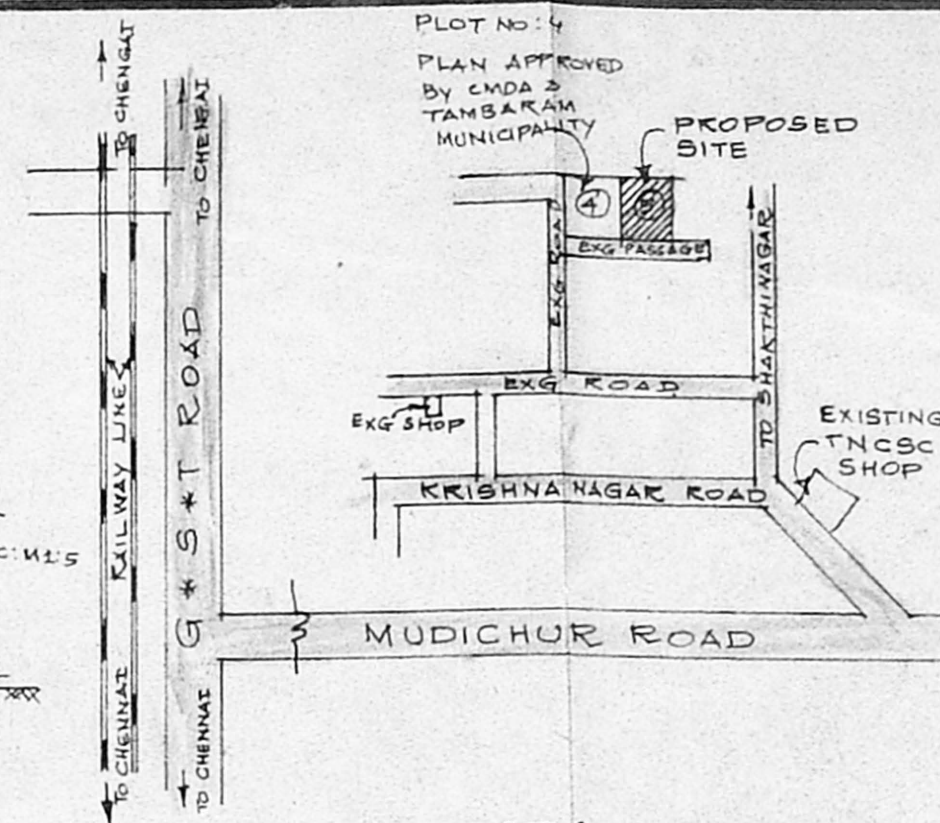 PLOT NO: 4
PLAN APPROVED
BY CMDA &
TAMBARAM
MUNICIPALITY
PROPOSED
SITE
4
EXG PASSAGE
EXG ROAD
EXG ROAD
EXG SHOP
KRISHNA NAGAR ROAD
TO SHAKTHINAGAR
EXISTING
TNCSC
SHOP
MUDICHUR ROAD
G*S*T ROAD
TO CHENGAI
TO CHENNAI
RAILWAY LINE
TO CHENGAI
TO CHENNAI